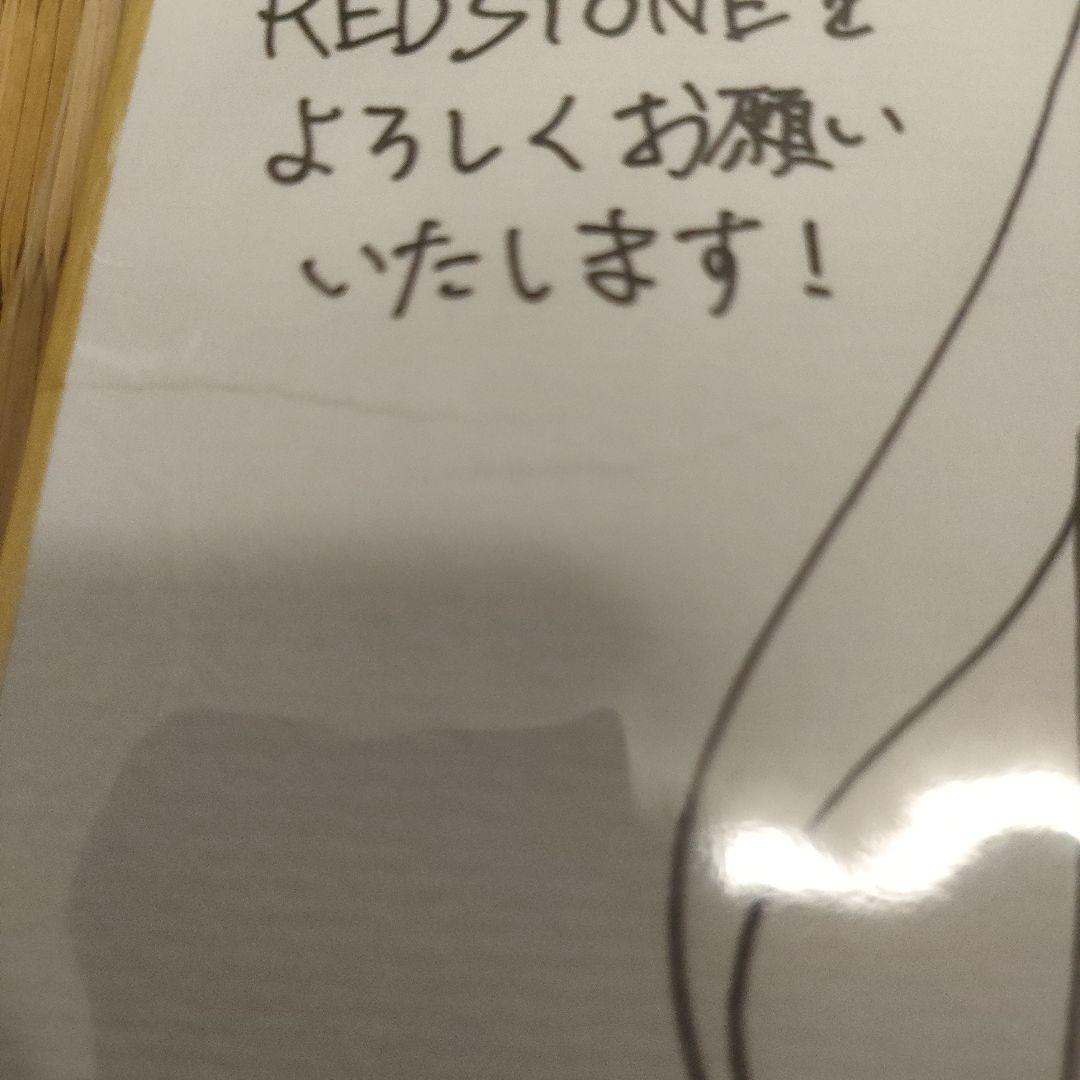 REDSTONEを
よろしくお願い
いたします!